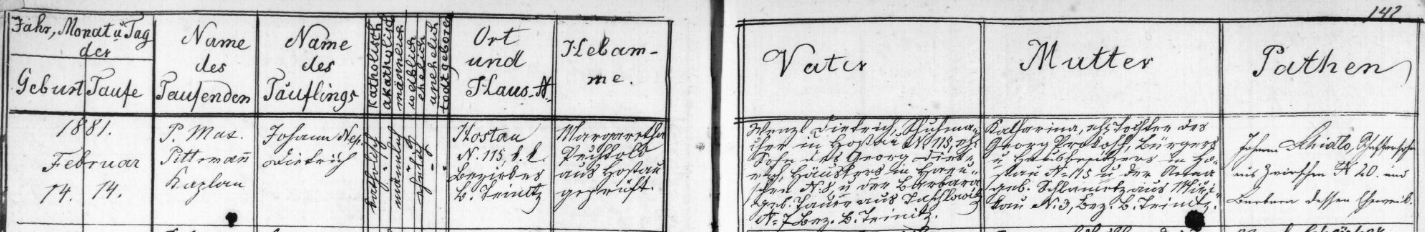 142
Jahr, Monat u Tag
der
Geburt Taufe
Name
des
Taufenden
Name
des
Täuflings
katholisch
akatholisch
männlich
weiblich
ehelich
unehelich
todtgeboren
Ort
und
Haus-N.
Hebam-
me.
Vater
Mutter
Pathen
1881.
Februar
14. 14.
P. Max.
Pittermañ
Kaplan
Johann Nep.
Dietrich
katholisch
männlich
ehelich
Hostau
N. 115, k. k.
Bezirkes
B. Teinitz
Margaretha
aus Hostau
geprüft.
Wenzl Dietrich, Schuhma-
cher in Hostau N. 115, ehl.
Sohn des Georg Diet-
rich, Häuslers in
N. 8 u der Barbara
geb. aus
N. 7 Bez. B. Teinitz.
Katharina, ehl. Tochter des
Georg Bürgers
u Hausbesitzers in Ho-
stau N. 115 u der Anna
geb. aus
N. 3, Bez. B. Teinitz.
Johann
aus N 20. und
Barbara dessen Eheweib.